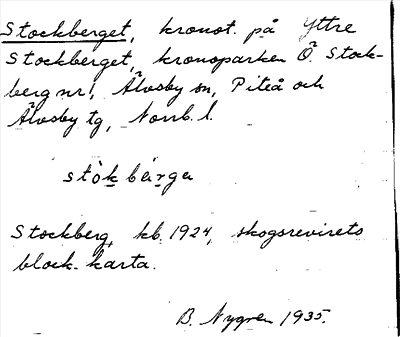 Stockberget, kronot. på Yttre
Stockberget, kronoparken Ö. Stock-
berg nr 1, Älvsby sn, Piteå och
Älvsby tg, Norrb. l.
stòk bárga
Stockberg, kb. 1924, skogsrevirets
block-karta.
B. Nygren 1935.